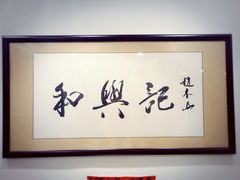 和興記
趙本山